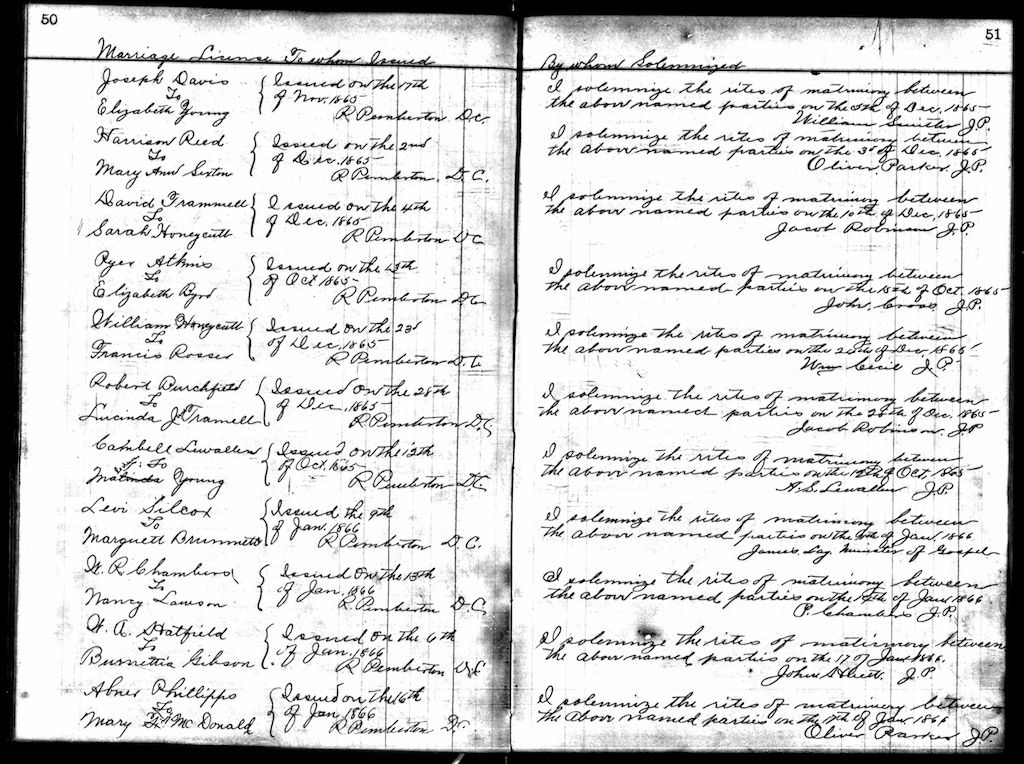 50
Marriage License To whom Issued
Joseph Davis
To
Elizabeth Young
Issued on the 17th
of Nov, 1865
R Pemberton D.C.
Harrison Reed
To
Mary Ann Sexton
Issued on the 2nd
of Dec. 1865
R Pemberton. D.C.
David Trammell
To
Sarah Honeycutt
Issued on the 4th
of Dec, 1865
R Pemberton D C
Ryer Atkins
To
Elizabeth Byrd
Issued on the 13th
of Oct 1865
R Pemberton D C
William Honeycutt
To
Francis Rosser
Issued on the 23d
of Dec, 1865
R Pemberton D.C.
Robert Burchfield
To
Lucinda J. Tramell
Issued on the 28th
of Dec, 1865
R Pemberton D.C.
Cambell Lewallen
To
Young
Issued on the 12th
of Oct 1865
R Pemberton D.C.
Levi Silcox
To
Marguett Brummett
Issued the 9th
of Jan. 1866
R Pemberton D.C.
W. R. Chambers
To
Nancy Lawson
Issued on the 13th
of Jan, 1866
R. Pemberton D.C.
Hatfield
To
Gibson
Issued on the 6th
of Jan, 1866
R Pemberton D.C.
Abner Phillipps
To
Mary McDonald
Issued on the 16th
of Jan, 1866
R Pemberton D.C.
51
By whom Solemnized
I solemnize the rites of matrimony between
the above named parties on the of Dec, 1865
William J.P.
I solemnize the rites of matrimony between
the above named parties on the 3d of Dec, 1865
Oliver Parker, J.P.
I solemnize the rites of matrimony between
the above named parties on the 10th of Dec, 1865
Jacob Robinson J.P.
I solemnize the rites of matrimony between
the above named parties on the of Oct, 1865
John Cross J.P.
I solemnize the rites of matrimony between
the above named parties on the of Dec, 1865
Wm Cecil J.P.
I solemnize the rites of matrimony between
the above named parties on the of Dec. 1865
Jacob Robinson, J.P.
I solemnize the rites of matrimony between
the above named parties on the of Oct, 1865
A. S. Lewallen J.P.
I solemnize the rites of matrimony between
the above named parties on the of Jan, 1866
James Lay, Minister of Gospel
I solemnize the rites of matrimony between
the above named parties on the of Jan 1866
P. Chambers J.P.
I solemnize the rites of matrimony between
the above named parties on the 17 of Jan 1866.
John J.P.
I solemnize the rites of matrimony between
the above named parties on the of Jan 1866
Oliver Parker J.P.